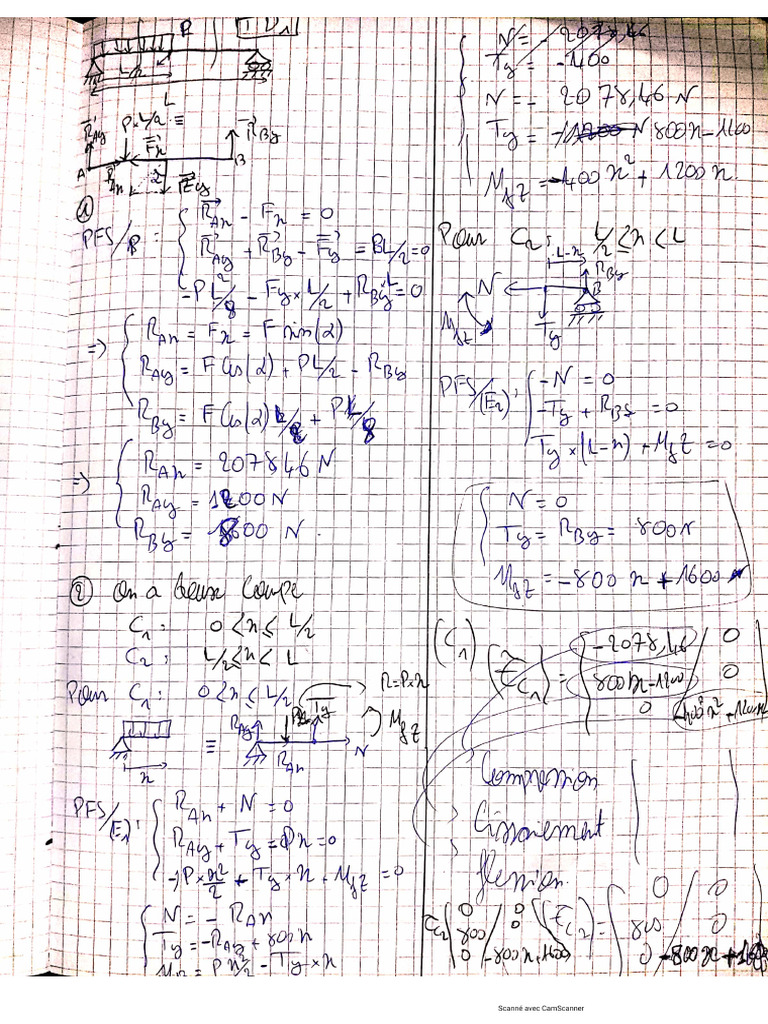 TD1
P
L/2
L
R_Ay
P×L/2
≡
F_x
R_By
A
R_Ax
F_y
B
①
PFS/B : { R_Ax - F_x = 0
R_Ay + R_By - F_y = PL/2 = 0
-PL²/8 - F_y × L/2 + R_By × L = 0
=> { R_Ax = F_x = F sin(α)
R_Ay = F Cos(α) + PL/2 - R_By
R_By = F Cos(α) L/2 + PL/8
=> { R_Ax = 2078,46 N
R_Ay = 1200 N
R_By = 800 N.
② On a deux Coupe
C1 : 0 < x ≤ L/2
C2 : L/2 ≤ x < L
Pour C1 : 0 < x ≤ L/2
R = P×x
R_Ay
T_y
M_fz
≡
R_Ax
N
x
PFS/(E1) : { R_Ax + N = 0
R_Ay + T_y = Px = 0
-P × x²/2 + T_y × x + M_fZ = 0
{ N = - R_Ax
T_y = -R_Ay + 800x
= Px²/2 - T_y × x
N = - 2078,46
T_y = -400
N = - 2078,46 N
T_y = 800x - 1200
M_fZ = -400x² + 1200x.
Pour C2 : L/2 ≤ x < L
L-x
R_By
N
B
M_fz
T_y
PFS/(E2) : { -N = 0
-T_y + R_By = 0
T_y × (L-x) + M_fZ = 0
{ N = 0
T_y = R_By = 800N
M_fZ = -800x + 1600
(C1)
(τ_C1) = ( -2078,46 / 0
800x - 1200 / 0
0 / -400x² + 1200x
Compression
Cissaiement
flexion
τ_C2 ( 0 / 0
800 / 0
0 / -800x + 1600
(τ_C2) = ( 0 / 0
800 / 0
0 / -800x + 1600
Scanné avec CamScanner